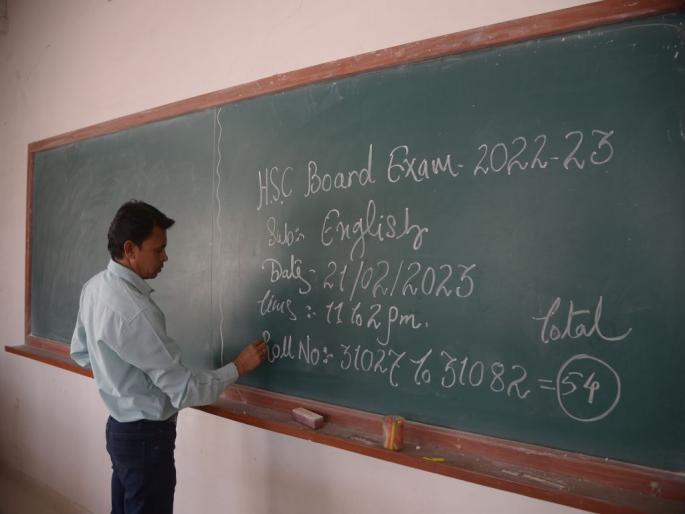 H.S.C Board Exam - 2022-23
Sub:- English
Date:- 21/02/2023
Time :- 11 to 2 pm.
Total
Roll No:- 31027 to 31082 = 54